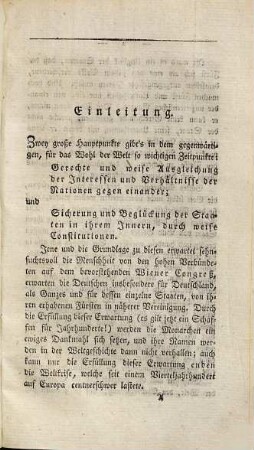 Einleitung.
Zwey große Hauptpunkte gibt's in dem gegenwärti-
gen, für das Wohl der Welt so wichtigen Zeitpunkte:
Gerechte und weise Ausgleichung
der Interessen und Verhältnisse der
Nationen gegen einander;
und
Sicherung und Beglückung der Staa-
ten in ihrem Innern, durch weise
Constitutionen.
Jene und die Grundlage zu diesen erwartet sehn-
suchtsvoll die Menschheit von den hohen Verbünde-
ten auf dem bevorstehenden Wiener Congreß,
erwarten die Deutschen insbesondere für Deutschland,
als Ganzes und für dessen einzelne Staaten, von ih-
ren erhabenen Fürsten in näherer Vereinigung. Durch
die Erfüllung dieser Erwartung (es gilt jetzt ein Schaf-
fen für Jahrhunderte!) werden die Monarchen ein
ewiges Dankmahl sich setzen, und ihre Namen wer-
den in der Weltgeschichte dann nicht verhallen; auch
kann nur die Erfüllung dieser Erwartung enden
die Weltkrise, welche seit einem Vierteljahrhundert
auf Europa centnerschwer lastete.